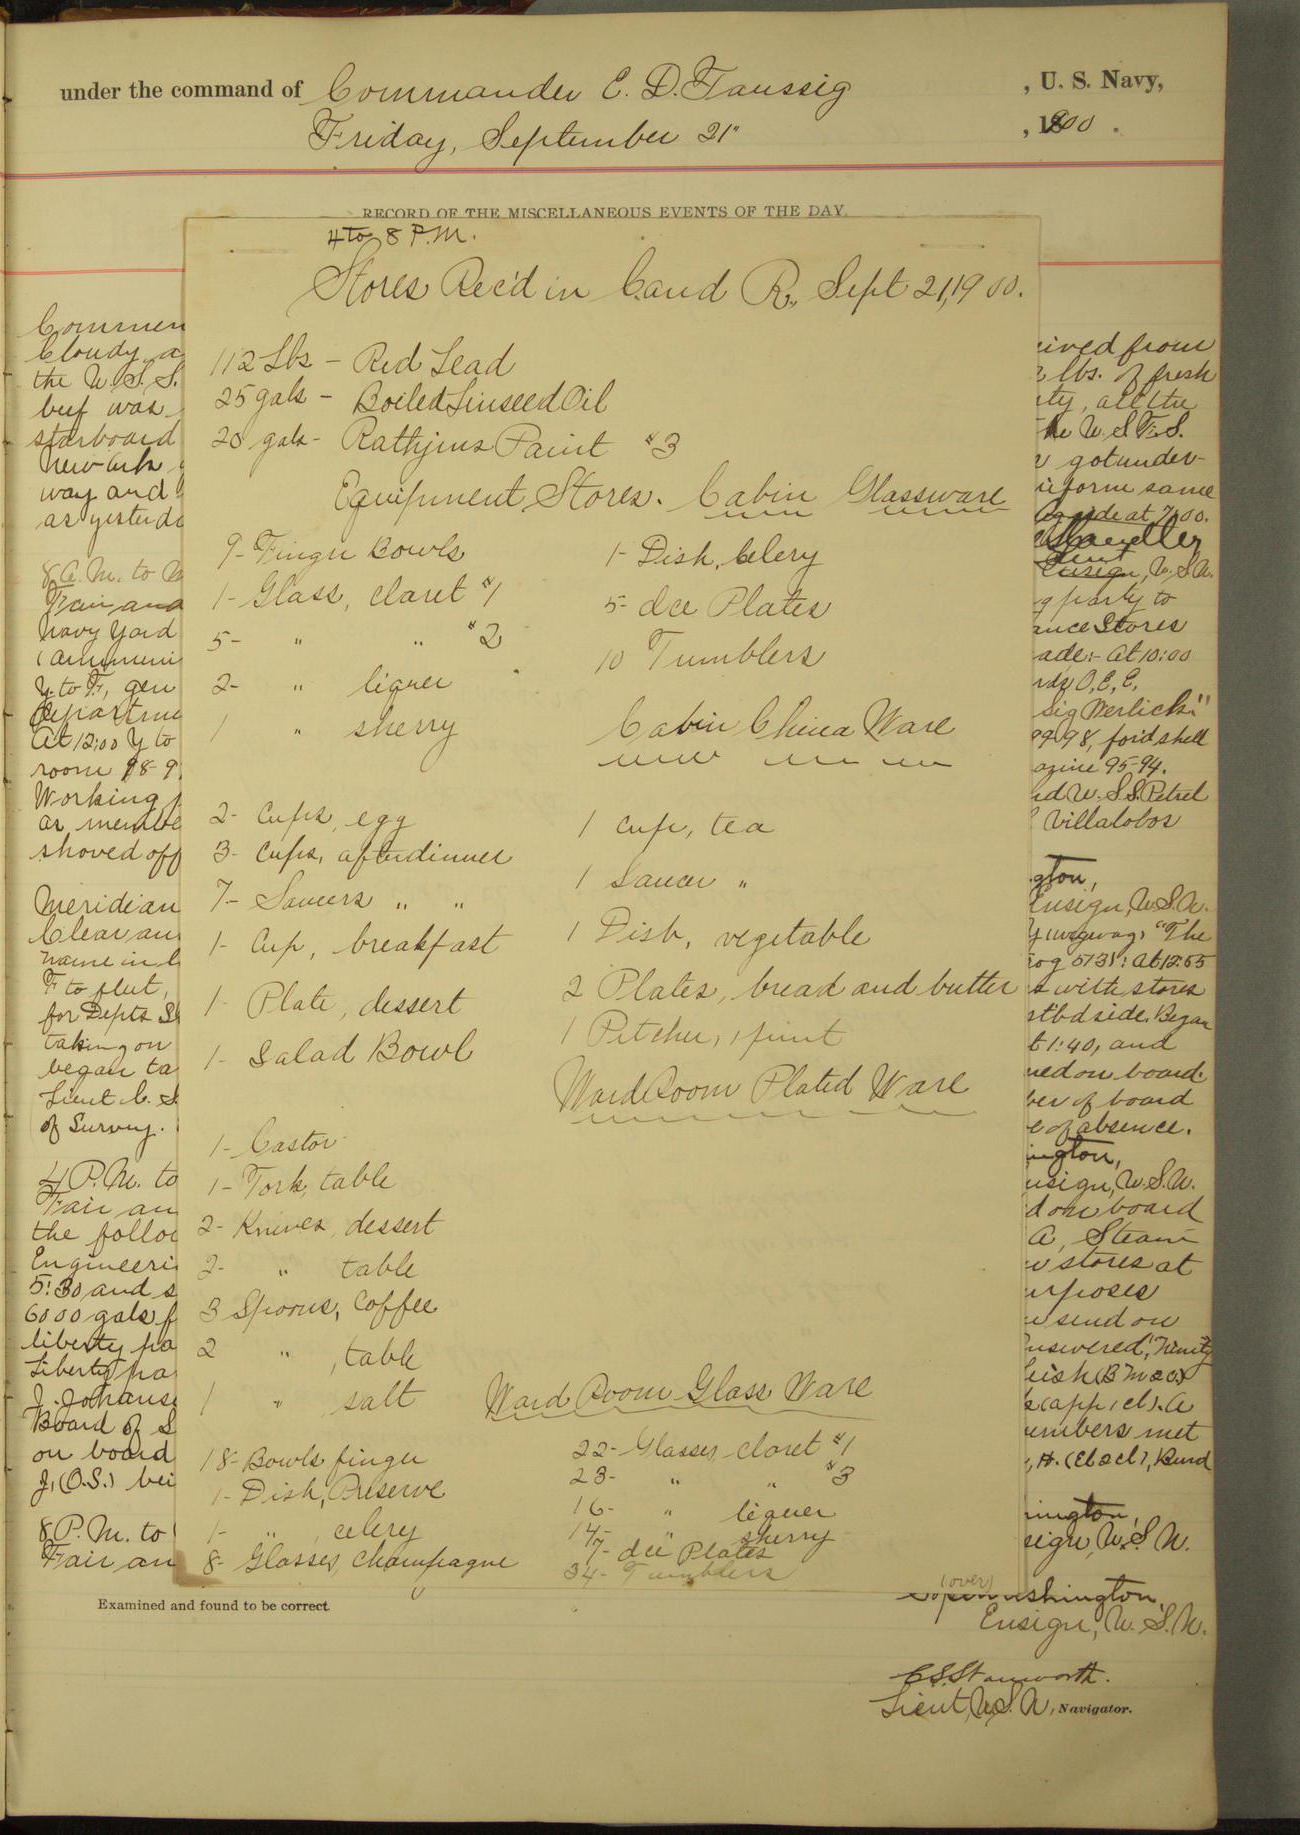 under the command of Commander E. D. Taussig , U. S. Navy,
Friday, September 21" , 1900 .
RECORD OF THE MISCELLANEOUS EVENTS OF THE DAY.
4 to 8 P.M.
Stores Rec'd in C. and R., Sept 21, 1900.
112 Lbs - Red Lead
25 gals - Boiled Linseed Oil
20 gals - Rathjins Paint #3
Equipment Stores. Cabin Glassware
9- Finger Bowls
1- Glass, claret #1
5- " " #2
2- " liquer
1 " sherry
1- Dish, Celery
5- Ice Plates
10 Tumblers
Cabin China Ware
2- Cups, egg
3- Cups, afterdinner
7- Saucers " "
1- Cup, breakfast
1- Plate, dessert
1- Salad Bowl
1 Cup, tea
1 Saucer "
1 Dish, vegetable
2 Plates, bread and butter
1 Pitcher, 1 pint
Ward Room Plated Ware
1- Castor
1- Fork, table
2- Knives, dessert
2- " table
3 Spoons, Coffee
2 " , table
1 " salt
Ward Room Glass Ware
18- Bowls finger
1- Dish, Preserve
1- " , celery
8- Glasses, Champagne
22- Glasses, claret #1
23- " " #3
16- " liquer
14- " sherry
7- Ice Plates
34- Tumblers
(over)
Commen
Cloudy, a
the U.S.S.
beef was
starboard
New Ark
way and
as yesterd
8 A.M. to M
Fair and
Navy Yard
Y. to F, gen
Departme
At 12:00 Y to
room 98-9
Working p
as membe
shoved off
Meridian
Clear an
name in l
F to fleet,
for Depts S
taking on
began ta
Lieut C. S
of Survey.
4 P.M. to
Fair an
the follow
Engineeri
5:30 and s
6000 gals f
liberty pa
Liberty pa
J. Johanse
Board of S
on board
J, (O.S.) bei
8 P.M. to
Fair an
eived from
lbs. of fresh
ty, all the
he U.S.F.S.
got under-
iform same
at 7:00.
Ensign, U.S.N.
g party to
ance Stores
ade:- At 10:00
rds O, E, E,
Sig Werlich:"
99-98, for'd shell
azine 95-94.
nd U.S.S. Petrel
Villalobos
gton,
Ensign, U.S.N.
Y (wigwag) "The
At 12:55
s with stores
stbd side. Began
t 1:40, and
ned on board.
ber of board
e of absence.
ington,
nsign, U.S.N.
d on board
A, Steam
stores at
urposes
send on
nswered, "Trinity
k (app, cl). A
embers met
, H. (El 2 cl), Bund
hington,
sign, U.S.N.
Washington,
Ensign, U.S.N.
Examined and found to be correct.
C. S. Stanworth.
Lieut, U.S.N, Navigator.